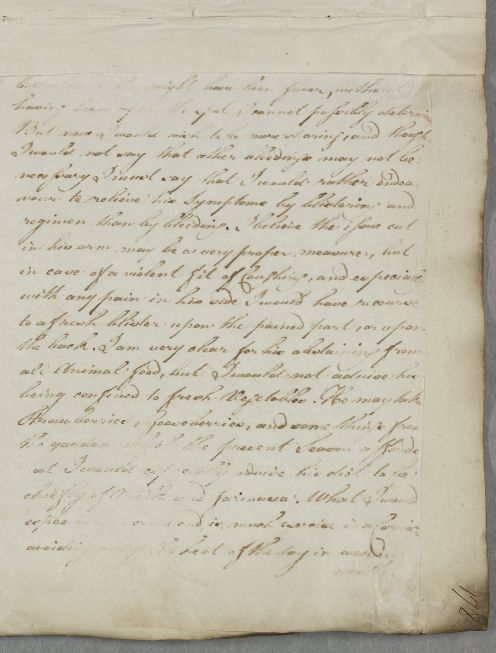 might have been fewer, without
having been upon the spot I cannot possibly determine
But now I would wish to be more sparing, and though
I would not say that other bleedings may not be
necessary I must say that I would rather endea
vour to relieve his Symptoms by blistering and
regimen than by bleeding. I believe the issue cut
in his arm may be a very proper measure, but
in case of a violent fit of Coughing, and especially
with any pain in his side I would have recourse
to a fresh blister upon the pained part, or upon
the back. I am very clear for his abstaining from
all Animal food, but I would not advise his
being confined to fresh Vegetables. He may take
Strawberries, and some things from
the garden the present Season affords
I would especially advise his diet to be
chiefly of Milk and farinacea. What I would
especially is much exercise in a
avoiding only the heat of the day in warm
178